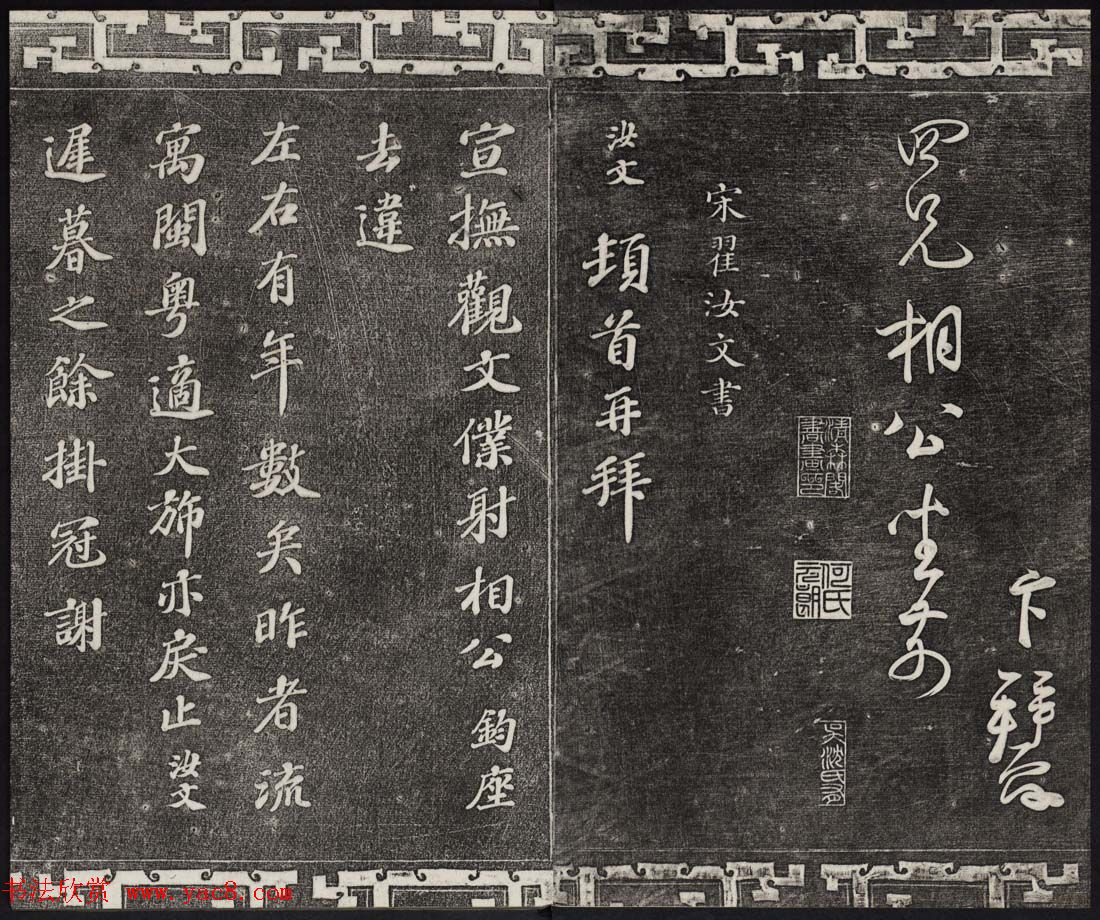 卞拜
四兄相公坐前
清森閣書畫印
何氏元朗
宋翟汝文書
汝文頓首再拜
宣撫觀文僕射相公鈞座
去違
左右有年數矣昨者流
寓閩粤適大斾亦戾止汝文
遲暮之餘掛冠謝
书法欣赏 www.yac8.com